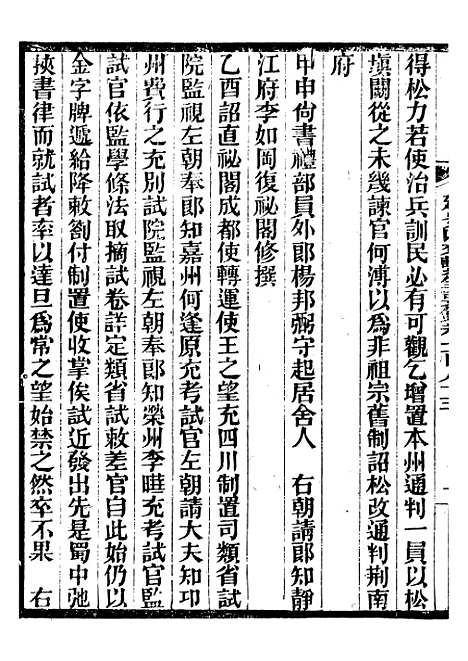 得松力若使治兵訓民必有可觀乞增置本州通判一員以松
填闕從之未幾諫官何溥以爲非祖宗舊制詔松改通判荆南
府
甲申尙書禮部員外郎楊邦弼守起居舍人　右朝請郎知靜
江府李如岡復祕閣修撰
乙酉詔直祕閣成都使轉運使王之望充四川制置司類省試
院監視左朝奉郎知嘉州何逢原充考試官左朝請大夫知印
州費行之充别試院監視左朝奉郎知榮州李畦充考試官監
試官依監學條法取摘試卷詳定類省試敕差官自此始仍以
金字牌遞給降敕劄付制置使收掌俟試近發出先是蜀中弛
挾書律而就試者率以達旦爲常之望始禁之然卒不果　右